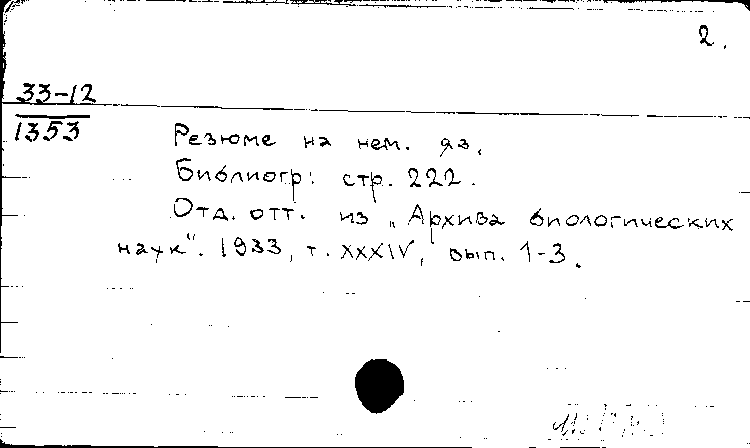 2.
33-12
1353
Резюме на нем. яз.
Библиогр: стр. 222.
Отд. отт. из „Архива биологических
наук". 1933, т. XXXIV, вып. 1-3.